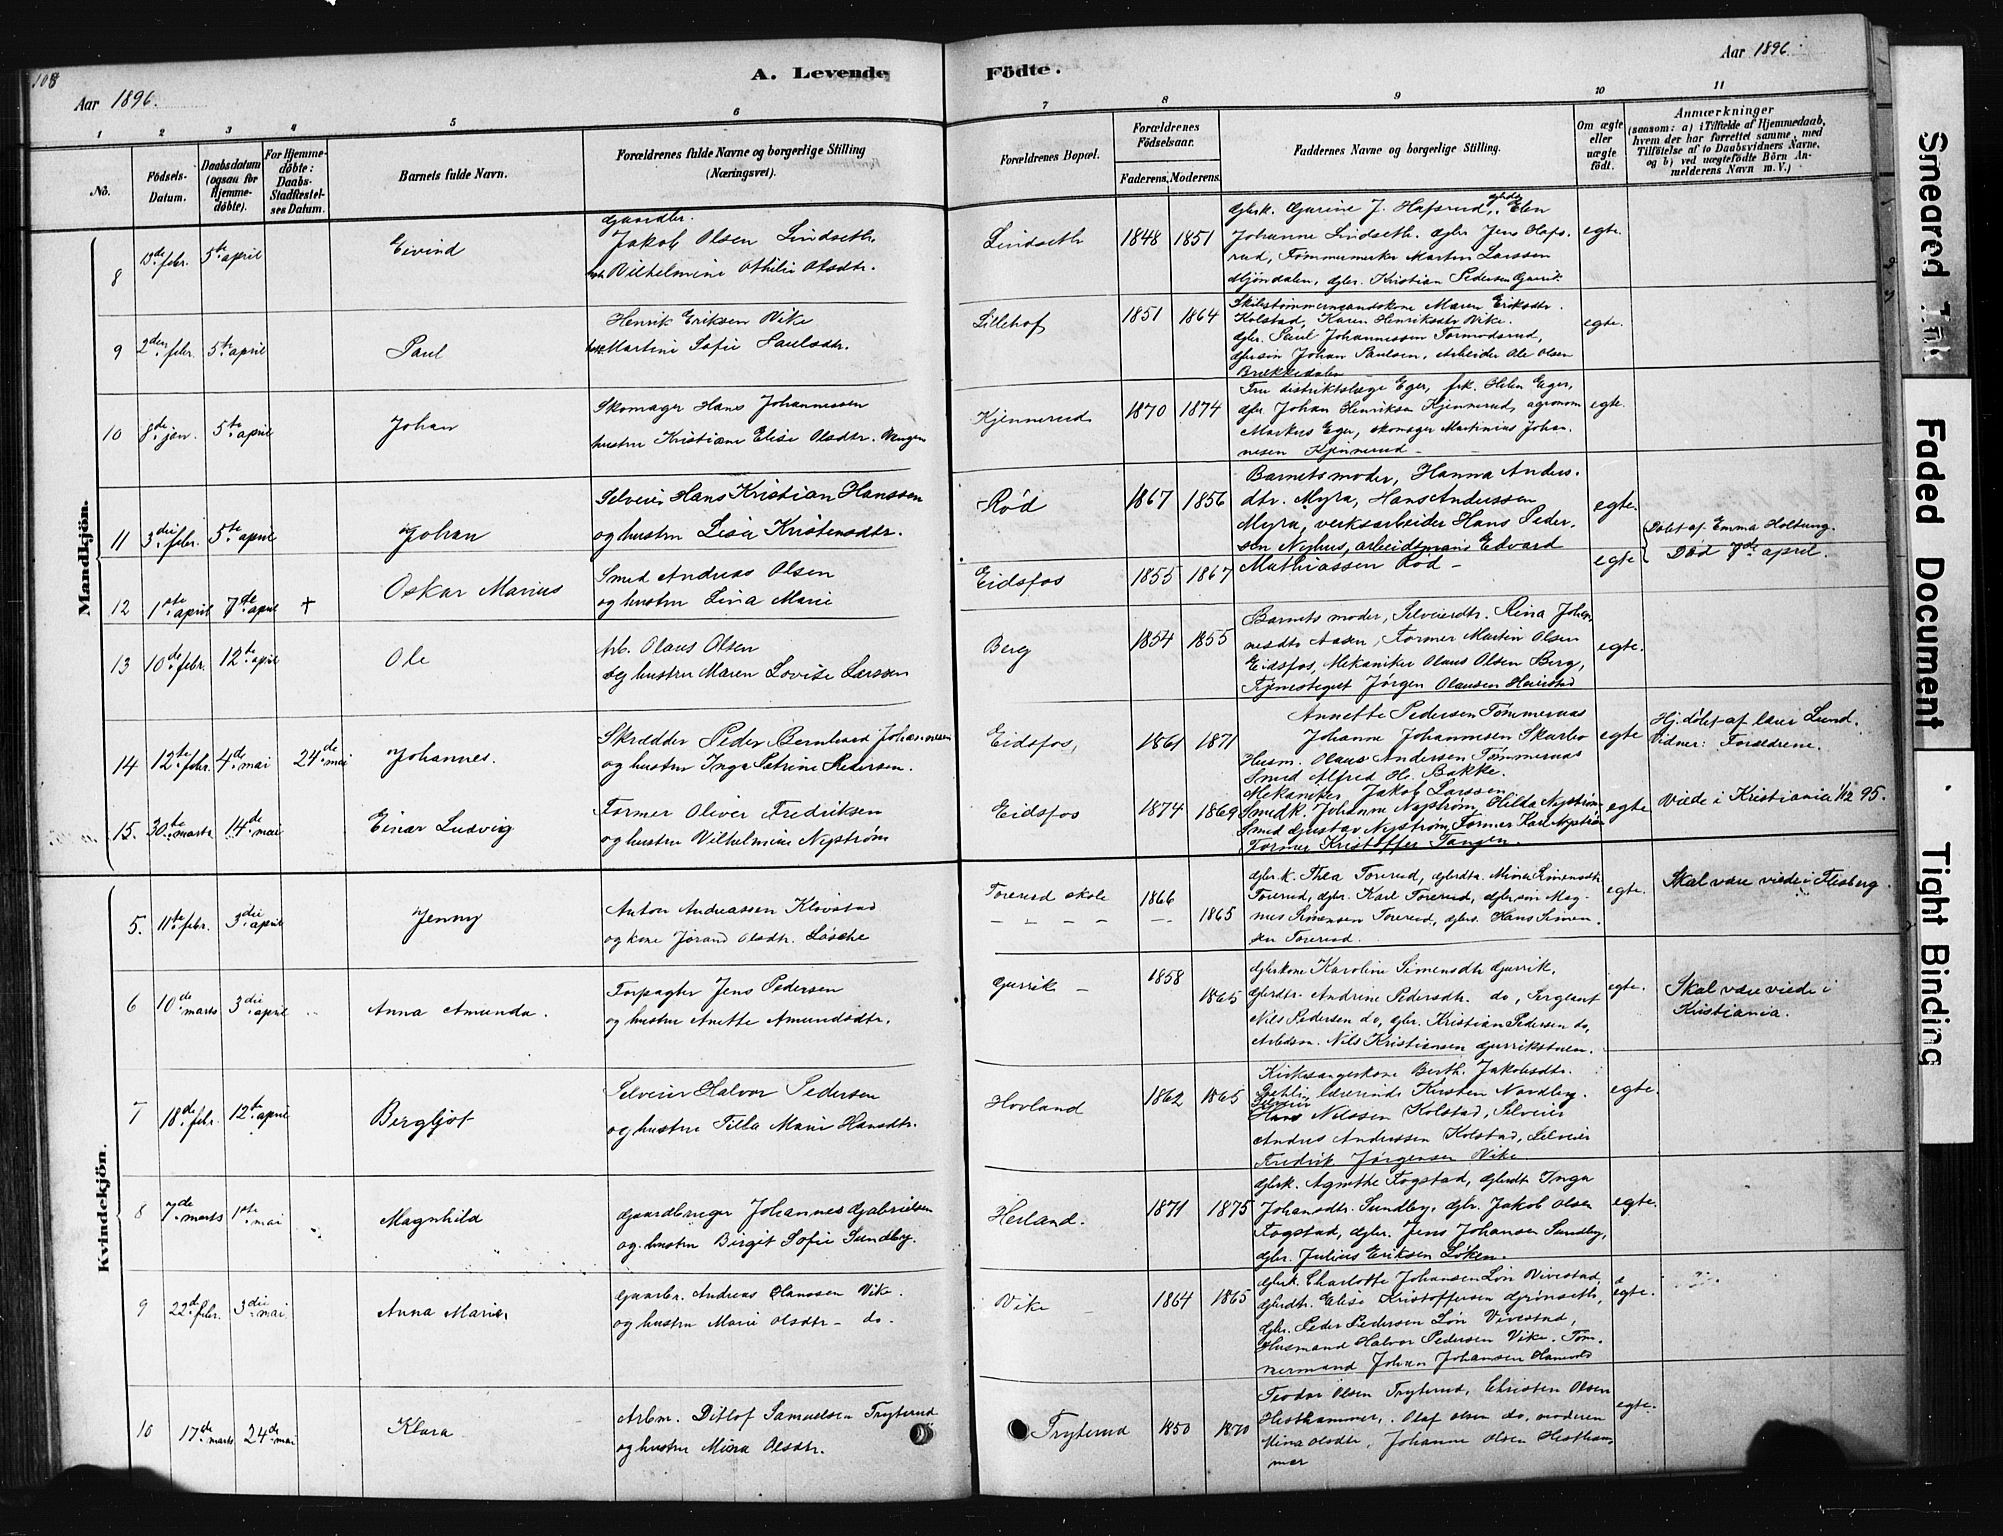 108
A. Levende Födte.
Aar 1896.
Aar 1896.
1 2 3 4 5 6 7 8 9 10 11
No.
Födsels-Datum.
Daabsdatum (ogsaa for Hjemme-döbte).
For Hjemme-döbte: Daabs-Stadfæstel-ses Datum.
Barnets fulde Navn.
Forældrenes fulde Navne og borgerlige Stilling (Næringsvei).
Forældrenes Bopæl.
Forældrenes Födselsaar.
Faderens. Moderens.
Faddernes Navne og borgerlige Stilling.
Om ægte eller uægte födt.
Anmærkninger
(saasom: a) i Tilfælde af Hjemmedaab, hvem der har forrettet samme, med Tilföielse af to Daabsvidners Navne, og b) ved uægtefödte Börn Anmelderens Navn m. V.)
Mandkjön.
8 13de febr. 5te april Eivind
Gaardbr.
Jakob Olsen Lindseth
Vilhelmine Othilie Olsdtr.
Lindseth 1848 1851
Johanne Lindseth. gbr. Jens Hafs-
rud, Tømmermerker Martin Larssen
Mjøndalen, gbr. Kristian Pedersen
egte.
9 2den febr. 5te april Paul
Henrik Eriksen Vike
Martine Sofie Paulsdtr.
Lillehof 1851 1864
Kolstad, Karen Henriksdtr Vike.
gbr. Paul Johannessen Formodsrud,
Johan Paulsen, Arbeider Ole Olsen
Brækkedalen
egte.
10 8de jan. 5te april Johan
Skomager Hans Johannessen
hustru Kristiane Elise Olsdtr.
Kjennerud 1870 1874
Fru distriktslæge Eger, frk. Helen Eger,
gbr. Johan Henriksen Kjennerud, agronom
Markus Eger, skomager Martinius Johan-
nesen Kjennerud
egte.
11 3die febr. 5te april Johan
Selveier Hans Kristian Hanssen
og hustru Lisa Kristensdtr.
Rød 1867 1856
Barnets moder, Hanna Anders-
dtr. Myra, Hans Anderssen
Myra, verksarbeider Hans Peder-
sen Nyhus, arbeidsmand Edvard
Mathiassen Rød -
egte.
12 1ste april 7de april † Oskar Marius
Smed Andreas Olsen
og hustru Lina Marie
Eidsfos 1855 1867
egte
Døbt af Emma Holtung.
Død 7de april.
13 10de febr. 12te april Ole
Olaus Olsen
og hustru Maren Lovise Larssen
Berg 1854 1855
Barnets moder, Selveierdtr. Rina Johan-
nesdtr Aasen, Former Martin Olsen
Eidsfos, Mekaniker Olaus Olsen Berg,
Tjenestegut Jørgen Olaussen
egte.
14 12te febr. 4de mai 24de mai Johannes.
Skrædder Peder Bernhard Johannessen
og hustru Inga Petrine Pedersen.
Eidsfos, 1861 1871
Annette Pedersen Tømmeraas
Johanne Johannesen Skarbo
Husm. Olaus Andersen Tømmeraas
Smed Alfred H. Bakke.
Mekaniker Jakob Larssen
egte
Hj. døbt af lærer Lund.
Vidner: Forældrene.
15. 30te marts 14de mai Einar Ludvig
Former Oliver Fredriksen
og hustru Vilhelmine Nystrøm
Eidsfos 1874 1869
Smedk. Johanne Nystrøm, Hilda Nystrøm
Smed Gustav Nystrøm, Former Karl Nystrøm
Former Kristoffer Tangen.
egte
Viede i Kristiania 1/12 95.
Kvindekjön.
5. 11te febr. 3die april Jenny
Anton Andreassen Klovstad
og kone Jørand Olsdtr. Løsche
Torerud skole 1866 1865
gbr.k. Thea Torerud, gbrdtr. Mina Simensdtr
Torerud, gbr. Karl Torerud, gbr.søn Mag-
nus Simensen Torerud, gbrs. Hans Simen-
sen Torerud.
egte.
Skal være viede i Flesberg.
6 10de marts 3die april Anna Amunda.
Forpagter Jens Pedersen
og hustru Anette Amundsdtr.
Gurrik - 1858 1865
gbrkone Karoline Simensdtr Gurrik,
gbrdtr. Andrine Pedersdtr. do, Sergeant
Nils Pedersen do, gbr. Kristian Pedersen do,
Arbdsm. Nils Kristiansen Gurrikstuen.
egte.
Skal være viede i
Kristiania.
7 18de febr. 12te april Bergljot
Selveier Halvor Pedersen
og hustru Tilla Marie Hansdtr.
Hovland 1862 1865
Kirkesangerkone Berth. Jakobsdtr.
lærerinde Kirsten Nordberg.
Selveier
Hans Nilssen Kolstad, Selveier
Andres Anderssen Kolstad, Selveier
Fredrik Jørgensen Vike.
egte.
8 7de marts 1ste mai Magnhild
Gaardbruger Johannes Gabrielsen
og hustru Birgit Sofie Sundby.
Heiland. 1871 1875
gbrk. Agnethe Fogstad, gbrdtr Inga
Johansdtr. Sundby, gbr. Jakob Olsen
Fogstad, gbr. Jens Johansen Sundby,
gbr. Julius Eriksen Løken.
egte.
9 22de febr. 3die mai Anna Marie.
Gaardbr. Andreas Olaussen Vike.
og hustru Marie Olsdtr - do.
Vike - 1864 1865
gbrk. Charlotte Johansen Løn Vivestad,
gbrdtr. Elise Kristoffersen Grinseth,
gbr. Peder Pedersen Løn Vivestad,
Husmand Halvor Pedersen Vike. Tøm-
mermand Johan Johansen
egte.
10 17de marts 24de mai Klara
Arbm. Ditlof Samuelsen Tryterud
og hustru Mina Olsdtr.
Tryterud 1850 1870
Teodor Olsen Tryterud, Christen Olsen
Hesthammer, Olaf Olsen do, moderen
Mina Olsdtr, Johanne Olsen Hestham-
mer
egte.
Smeared Ink
Faded Document
Tight Binding